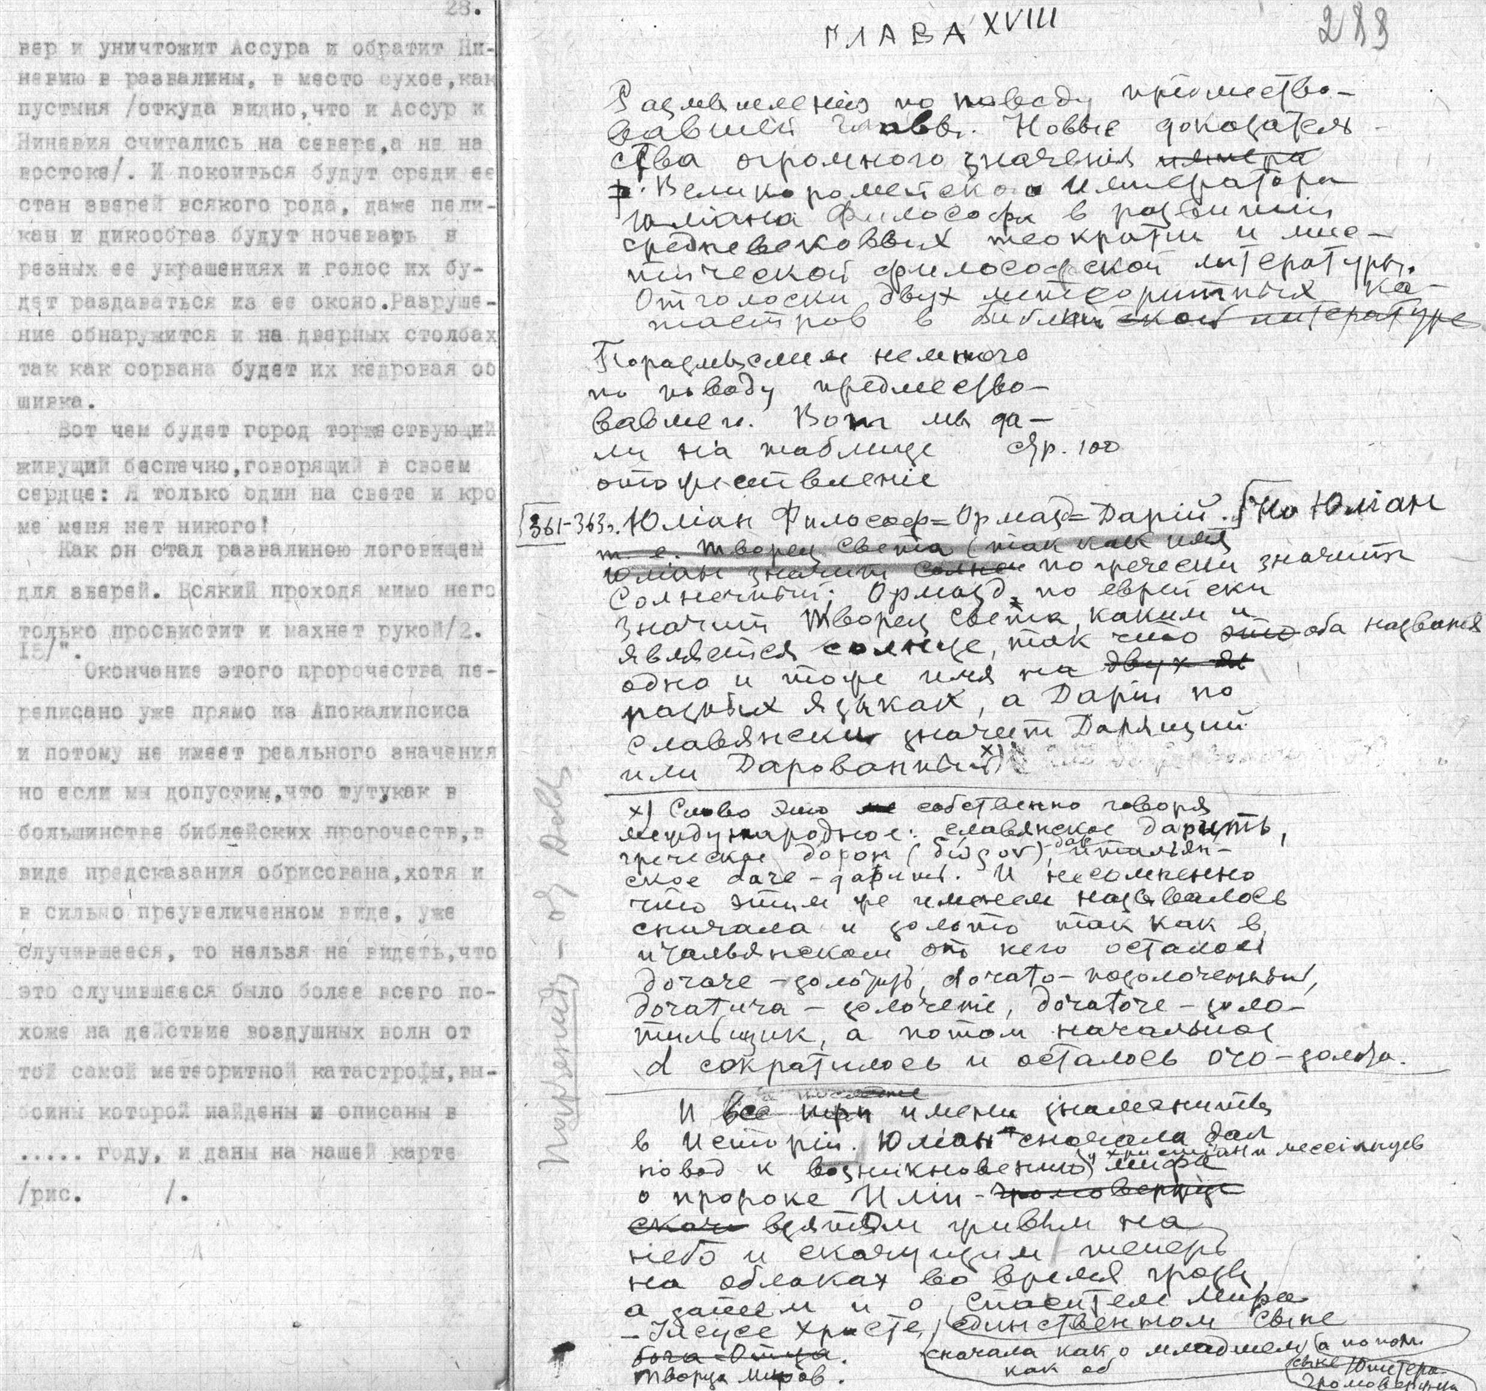 28.
вер и уничтожит Ассура и обратит Ни-
невию в развалины, в место сухое,как
пустыня /откуда видно,что и Ассур и
Ниневия считались на севере,а не на
востоке/. И покоиться будут среди ее
стан зверей всякого рода, даже пели-
кан и дикообраз будут ночевать в
резных ее украшениях и голос их бу-
дет раздаваться из ее оконо.Разруше-
ние обнаружится и на дверных столбах
так как сорвана будет их кедровая об
шивка.
Вот чем будет город торжествующий
живущий беспечно,говорящий в своем
сердце: Я только один на свете и кро
ме меня нет никого!
Как он стал развалиною логовищем
для зверей. Всякий проходя мимо него
только просвистит и махнет рукой/2.
15/".
Окончание этого пророчества пе-
реписано уже прямо из Апокалипсиса
и потому не имеет реального значения
но если мы допустим,что тут,как в
большинстве библейских пророчеств,в
виде предсказания обрисована,хотя и
в сильно преувеличенном виде, уже
случившееся, то нельзя не видеть,что
это случившееся было более всего по-
хоже на действие воздушных волн от
той самой метеоритной катастрофы,вы-
боины которой найдены и описаны в
..... году, и даны на нашей карте
/рис. /.
ГЛАВА XVIII
283
Размышления по поводу предшество-
вавшей главы. Новые доказатель-
ства огромного значения
Великоромейского императора
Юлиана Философа в развитии
средневековых теократии и мис-
тической философской литературы.
Отголоски двух метеоритных ка-
тастроф в Библии ской литературе
Поразмыслим немного
по поводу предшество-
вавшего. Вот мы да-
ли на таблице стр. 100
отожествленіе
361-363г. Юліан Философ=Ормазд=Дарій. Но Юліан
т.е. творец света (так как имя
Юліан значит по гречески значит
Солнечный; Ормазд по еврейски
значит творец света, каким и
является солнце, так что это оба названия
одно и тоже имя на двух яз
разных языках, а Дарій по
славянски значит Дарящий
или Дарованный x)
x) Слово это не собственно говоря
международное: славянское дарить,
греческое дорон итальян-
ское даче-дарить. И несомненно
что этим же именем называлось
сначала и золото так как в
итальянском от него осталось
dorare-золотить, dorato-позолоченный,
doratura-золоченіе, doratore-золо-
тильщик, а потом начальное
d сократилось и осталось oro-золото.
И все три имени знамениты
в Исторіи. Юліан сначала дал
повод к возникновению у христіан и мессіанцев мифа
о пророке Иліи- громовержце
взятом живым на
небо и скачущим теперь
на облаках во время грозы,
а затем и о Спасителе мира
-Іисусе Христе, единственном сыне
бога-Отца сначала как о младшем а потом
творца миров. как об сыне Юпитера
громовержца